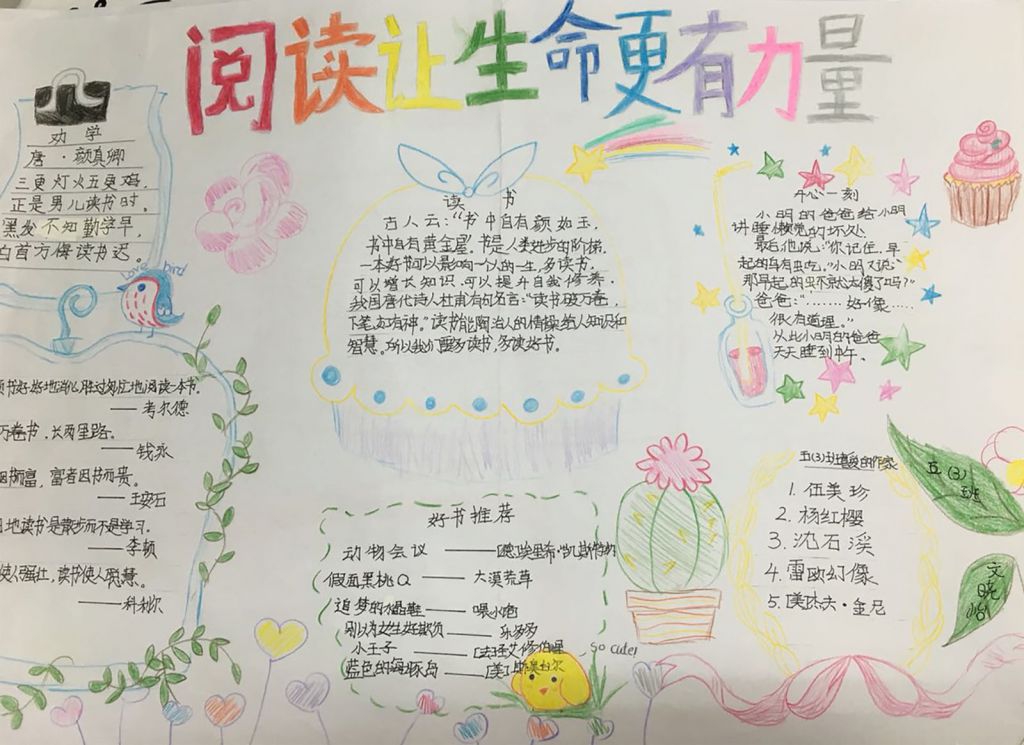 阅读让生命更有力量
劝学
唐·颜真卿
三更灯火五更鸡,
正是男儿读书时。
黑发不知勤学早,
白首方悔读书迟。
love bird
考尔德
万卷书,长两里路。
——钱泳
富者因书而贵。
——王安石
地读书是散步而不是学习。
——李顿
读书使人聪慧。
——科利尔
读书
古人云:“书中自有颜如玉,
书中自有黄金屋”书是人类进步的阶梯,
一本好书可以影响一个人的一生,多读书,
可以增长知识,可以提升自我修养,
我国唐代诗人杜甫有句名言:“读书破万卷,
下笔如有神。”读书能陶冶人的情操给人知识和
智慧。所以我们要多读书,多读好书。
开心一刻
小明的爸爸给小明
讲睡懒觉的坏处
最后他说:“你记住,早
起的鸟有虫吃。”小明又说:“
那早起的虫不就太傻了吗?”
爸爸:“……好像……
很有道理。”
从此小明的爸爸
天天睡到中午。
好书推荐
动物会议——[德]埃里希·凯斯特纳
假面黑桃Q——大漠荒草
追梦的水晶鞋——喂小饱
别以为女生好欺负——乐多多
小王子——[法]圣艾修伯里
蓝色的海豚岛——[美]
so cute!
五(3)班最爱的作家
1. 伍美珍
2. 杨红樱
3. 沈石溪
4. 雷欧幻像
5. [美]杰夫·金尼
五(3)
班
文晓